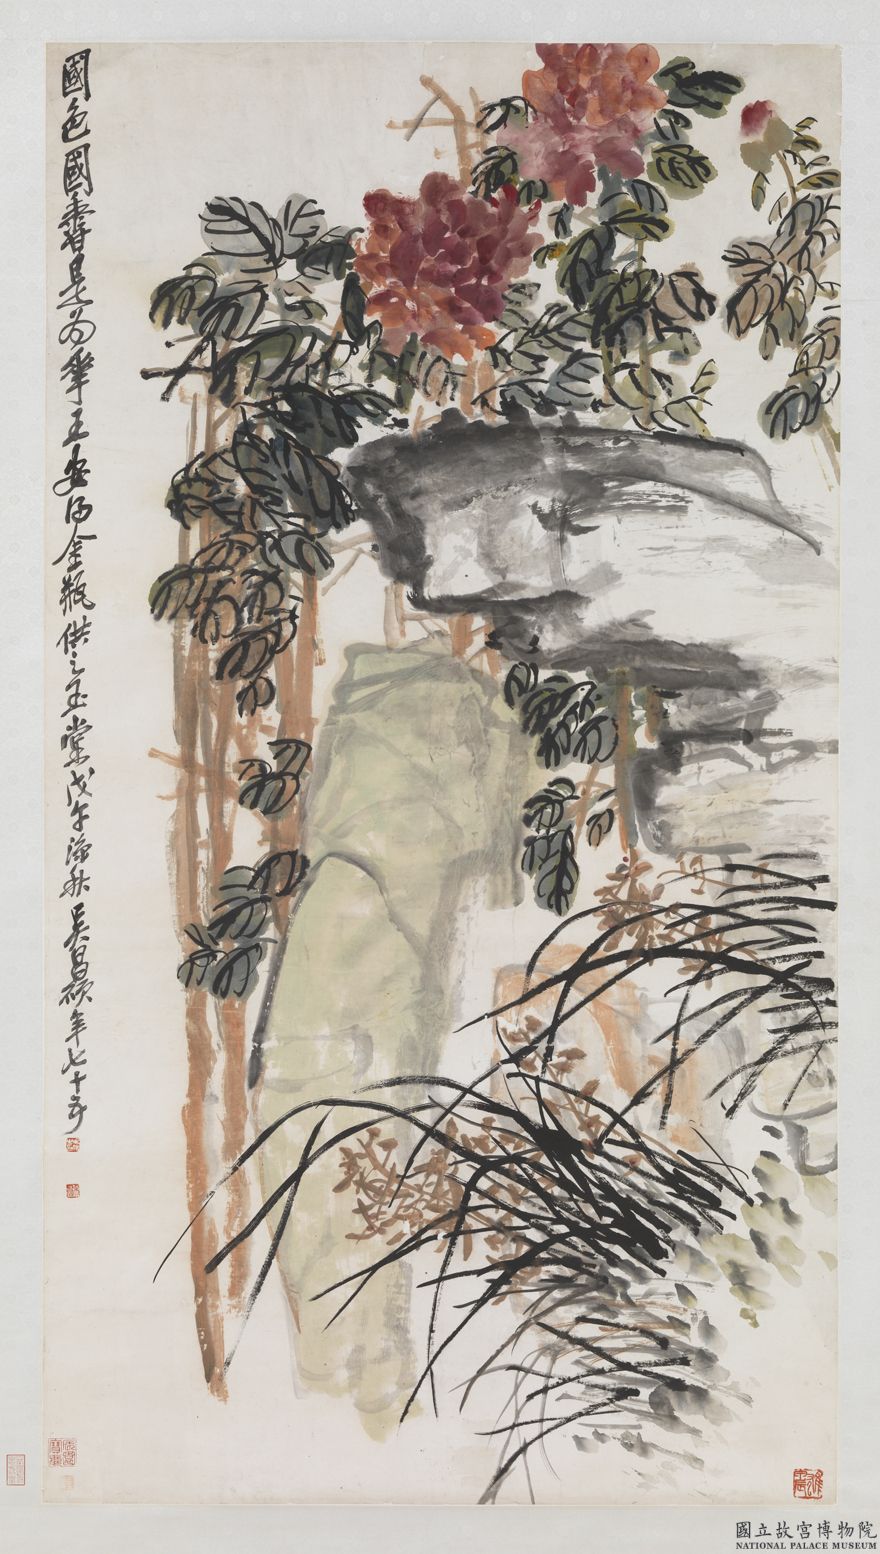 國色國香是為華王安得金瓶供之玉堂戊午深秋吳昌碩年七十五
國立故宮博物院
NATIONAL PALACE MUSEUM